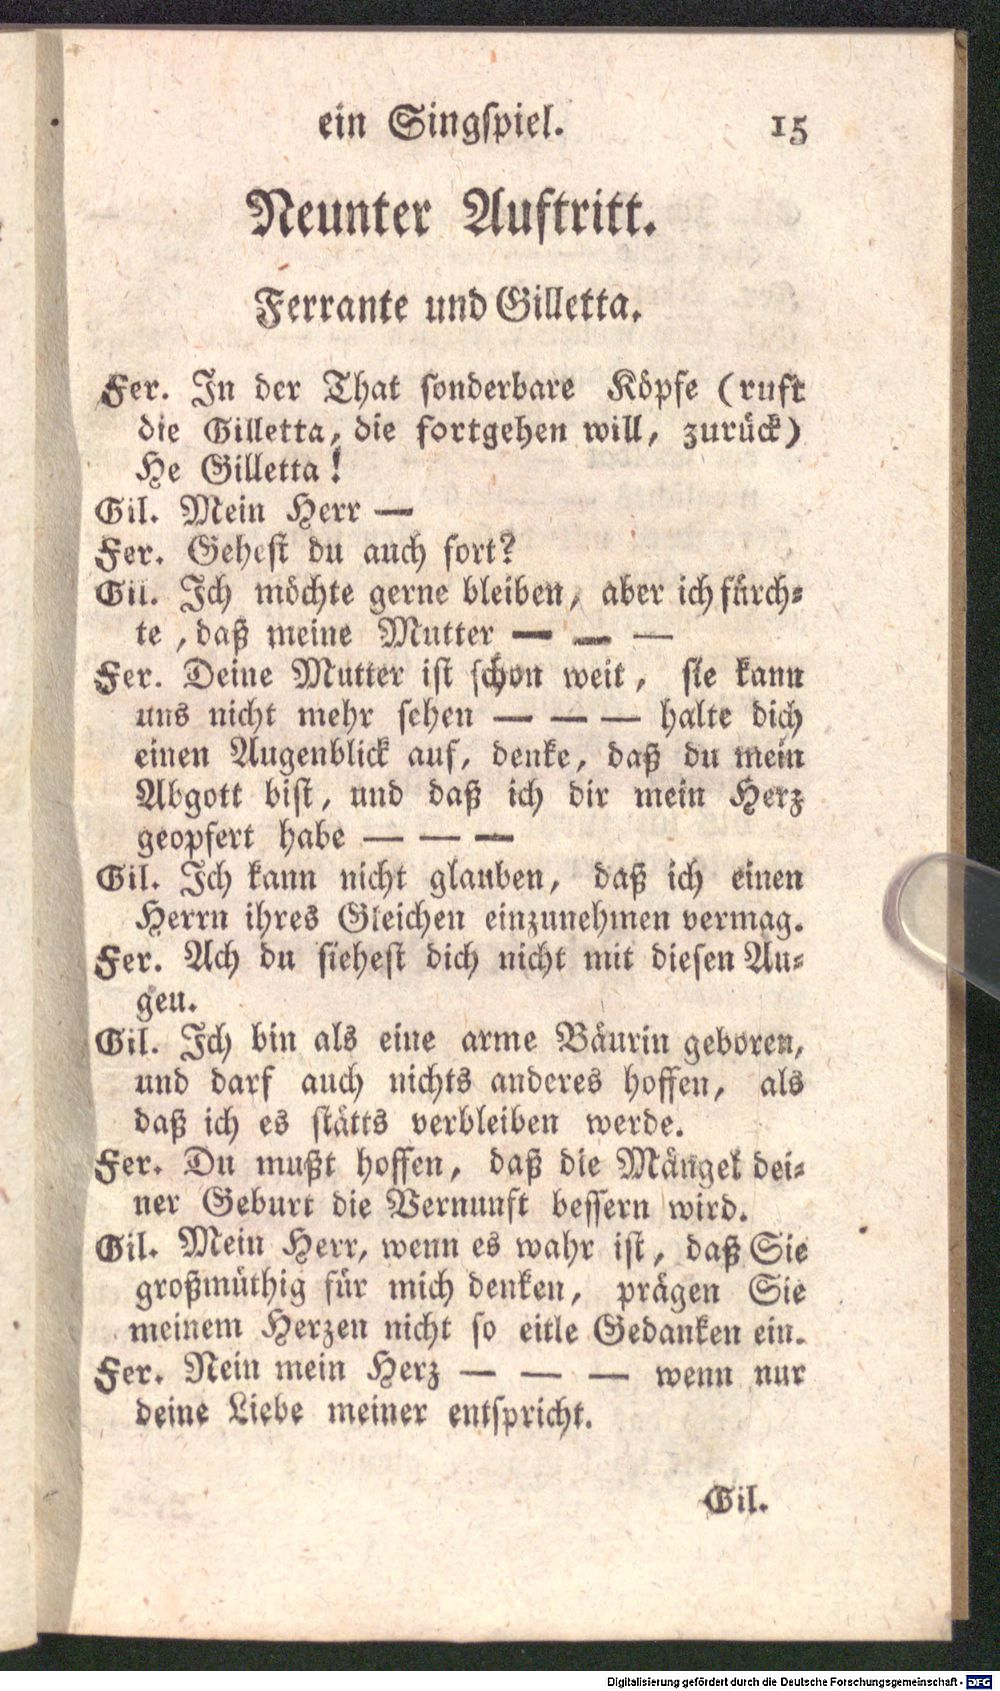 ein Singspiel. 15
Neunter Auftritt.
Ferrante und Gilletta.
Fer. In der That sonderbare Köpfe (ruft
die Gilletta, die fortgehen will, zurück)
He Gilletta!
Gil. Mein Herr —
Fer. Gehest du auch fort?
Gil. Ich möchte gerne bleiben, aber ich fürch-
te, daß meine Mutter — — —
Fer. Deine Mutter ist schon weit, sie kann
uns nicht mehr sehen — — — halte dich
einen Augenblick auf, denke, daß du mein
Abgott bist, und daß ich dir mein Herz
geopfert habe — — —
Gil. Ich kann nicht glauben, daß ich einen
Herrn ihres Gleichen einzunehmen vermag.
Fer. Ach du siehest dich nicht mit diesen Au-
gen.
Gil. Ich bin als eine arme Bäurin geboren,
und darf auch nichts anderes hoffen, als
daß ich es stätts verbleiben werde.
Fer. Du mußt hoffen, daß die Mängel dei-
ner Geburt die Vernunft bessern wird.
Gil. Mein Herr, wenn es wahr ist, daß Sie
großmüthig für mich denken, prägen Sie
meinem Herzen nicht so eitle Gedanken ein.
Fer. Nein mein Herz — — — wenn nur
deine Liebe meiner entspricht.
Gil.
Digitalisierung gefördert durch die Deutsche Forschungsgemeinschaft - DFG